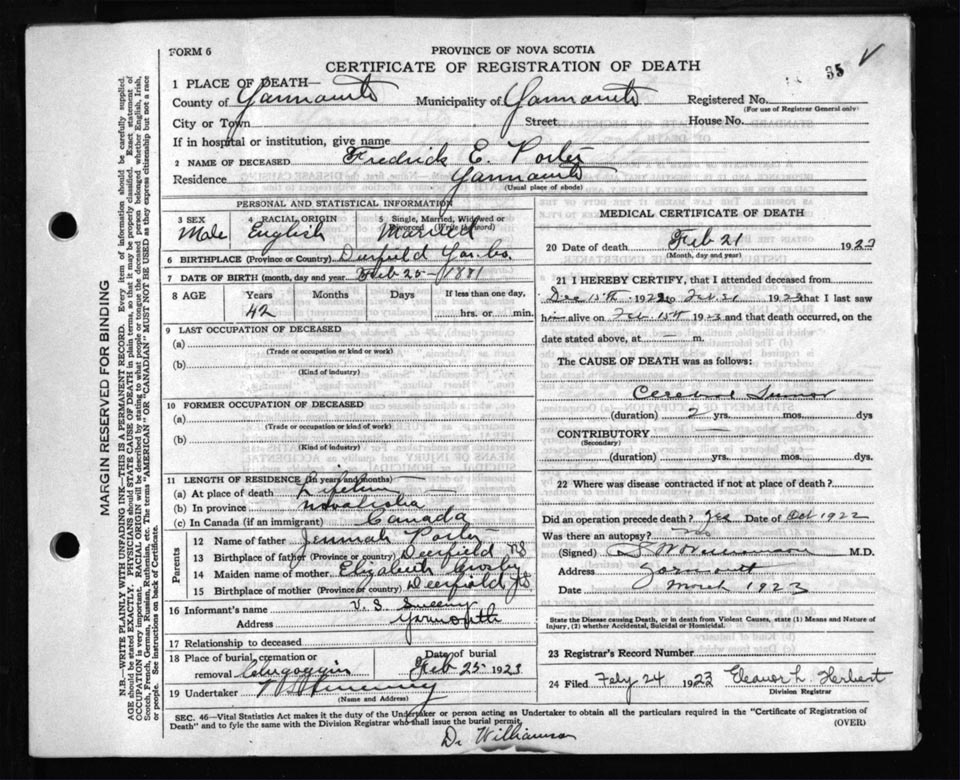 FORM 6
PROVINCE OF NOVA SCOTIA
CERTIFICATE OF REGISTRATION OF DEATH
35
1 PLACE OF DEATH—
County of Yarmouth Municipality of Yarmouth Registered No.
(For use of Registrar General only)
City or Town Street House No.
If in hospital or institution, give name
2 NAME OF DECEASED Fredrick E. Porter
Residence Yarmouth
(Usual place of abode)
PERSONAL AND STATISTICAL INFORMATION
3 SEX Male
4 RACIAL ORIGIN English
5 Single, Married, Widowed or Divorced (Write the word) Married
6 BIRTHPLACE (Province or Country) Deerfield Yar. Co.
7 DATE OF BIRTH (month, day and year) Feb 25 - 1881
8 AGE Years Months Days If less than one day,
42 hrs. or min.
9 LAST OCCUPATION OF DECEASED
(a)
(Trade or occupation or kind or work)
(b)
(Kind of industry)
10 FORMER OCCUPATION OF DECEASED
(a)
(Trade or occupation or kind of work)
(b)
(Kind of industry)
11 LENGTH OF RESIDENCE (in years and months)
(a) At place of death Lifetime
(b) In province Nova Scotia
(c) In Canada (if an immigrant) Canada
Parents
12 Name of father Porter
13 Birthplace of father (Province or country) Deerfield NS
14 Maiden name of mother Elizabeth Crosby
15 Birthplace of mother (Province or country) Deerfield NS
16 Informant's name V. S. Sweeny
Address Yarmouth
17 Relationship to deceased
18 Place of burial, cremation or removal Chegoggin Date of burial Feb 25 1923
19 Undertaker V S Sweeny
(Name and Address)
MEDICAL CERTIFICATE OF DEATH
20 Date of death Feb 21 1923
(Month, day and year)
21 I HEREBY CERTIFY, that I attended deceased from
Dec 15th 1922 to Feb 21 1923 that I last saw
him alive on Feb 15th 1923 and that death occurred, on the
date stated above, at — m.
The CAUSE OF DEATH was as follows:
Cerebral Tumor
(duration) 2 yrs. mos. dys
CONTRIBUTORY —
(Secondary)
(duration) yrs. mos. dys.
22 Where was disease contracted if not at place of death?
Did an operation precede death? Yes Date of Oct 1922
Was there an autopsy? no
(Signed) Williamson M.D.
Address Yarmouth
Date March 1923
State the Disease causing Death, or in death from Violent Causes, state (1) Means and Nature of Injury, (2) whether Accidental, Suicidal or Homicidal.
23 Registrar's Record Number
24 Filed Feby 24 1923 Eleanor L. Herbert
Division Registrar
SEC. 46—Vital Statistics Act makes it the duty of the Undertaker or person acting as Undertaker to obtain all the particulars required in the "Certificate of Registration of
Death" and to fyle the same with the Division Registrar who shall issue the burial permit.
(OVER)
Dr Williamson
MARGIN RESERVED FOR BINDING
N.B.—WRITE PLAINLY WITH UNFADING INK—THIS IS A PERMANENT RECORD. Every item of information should be carefully supplied.
AGE should be stated EXACTLY. PHYSICIANS should STATE CAUSE OF DEATH in plain terms, so that it may be properly classified. Exact statement of
OCCUPATION is very important. RACIAL ORIGIN will be described by stating to what people or tongue the deceased person belonged whether English, Irish,
Scotch, French, German, Russian, Ruthenian, etc. The terms "AMERICAN" OR "CANADIAN" MUST NOT BE USED as they express citizenship but not a race
or people. See instructions on back of Certificate.